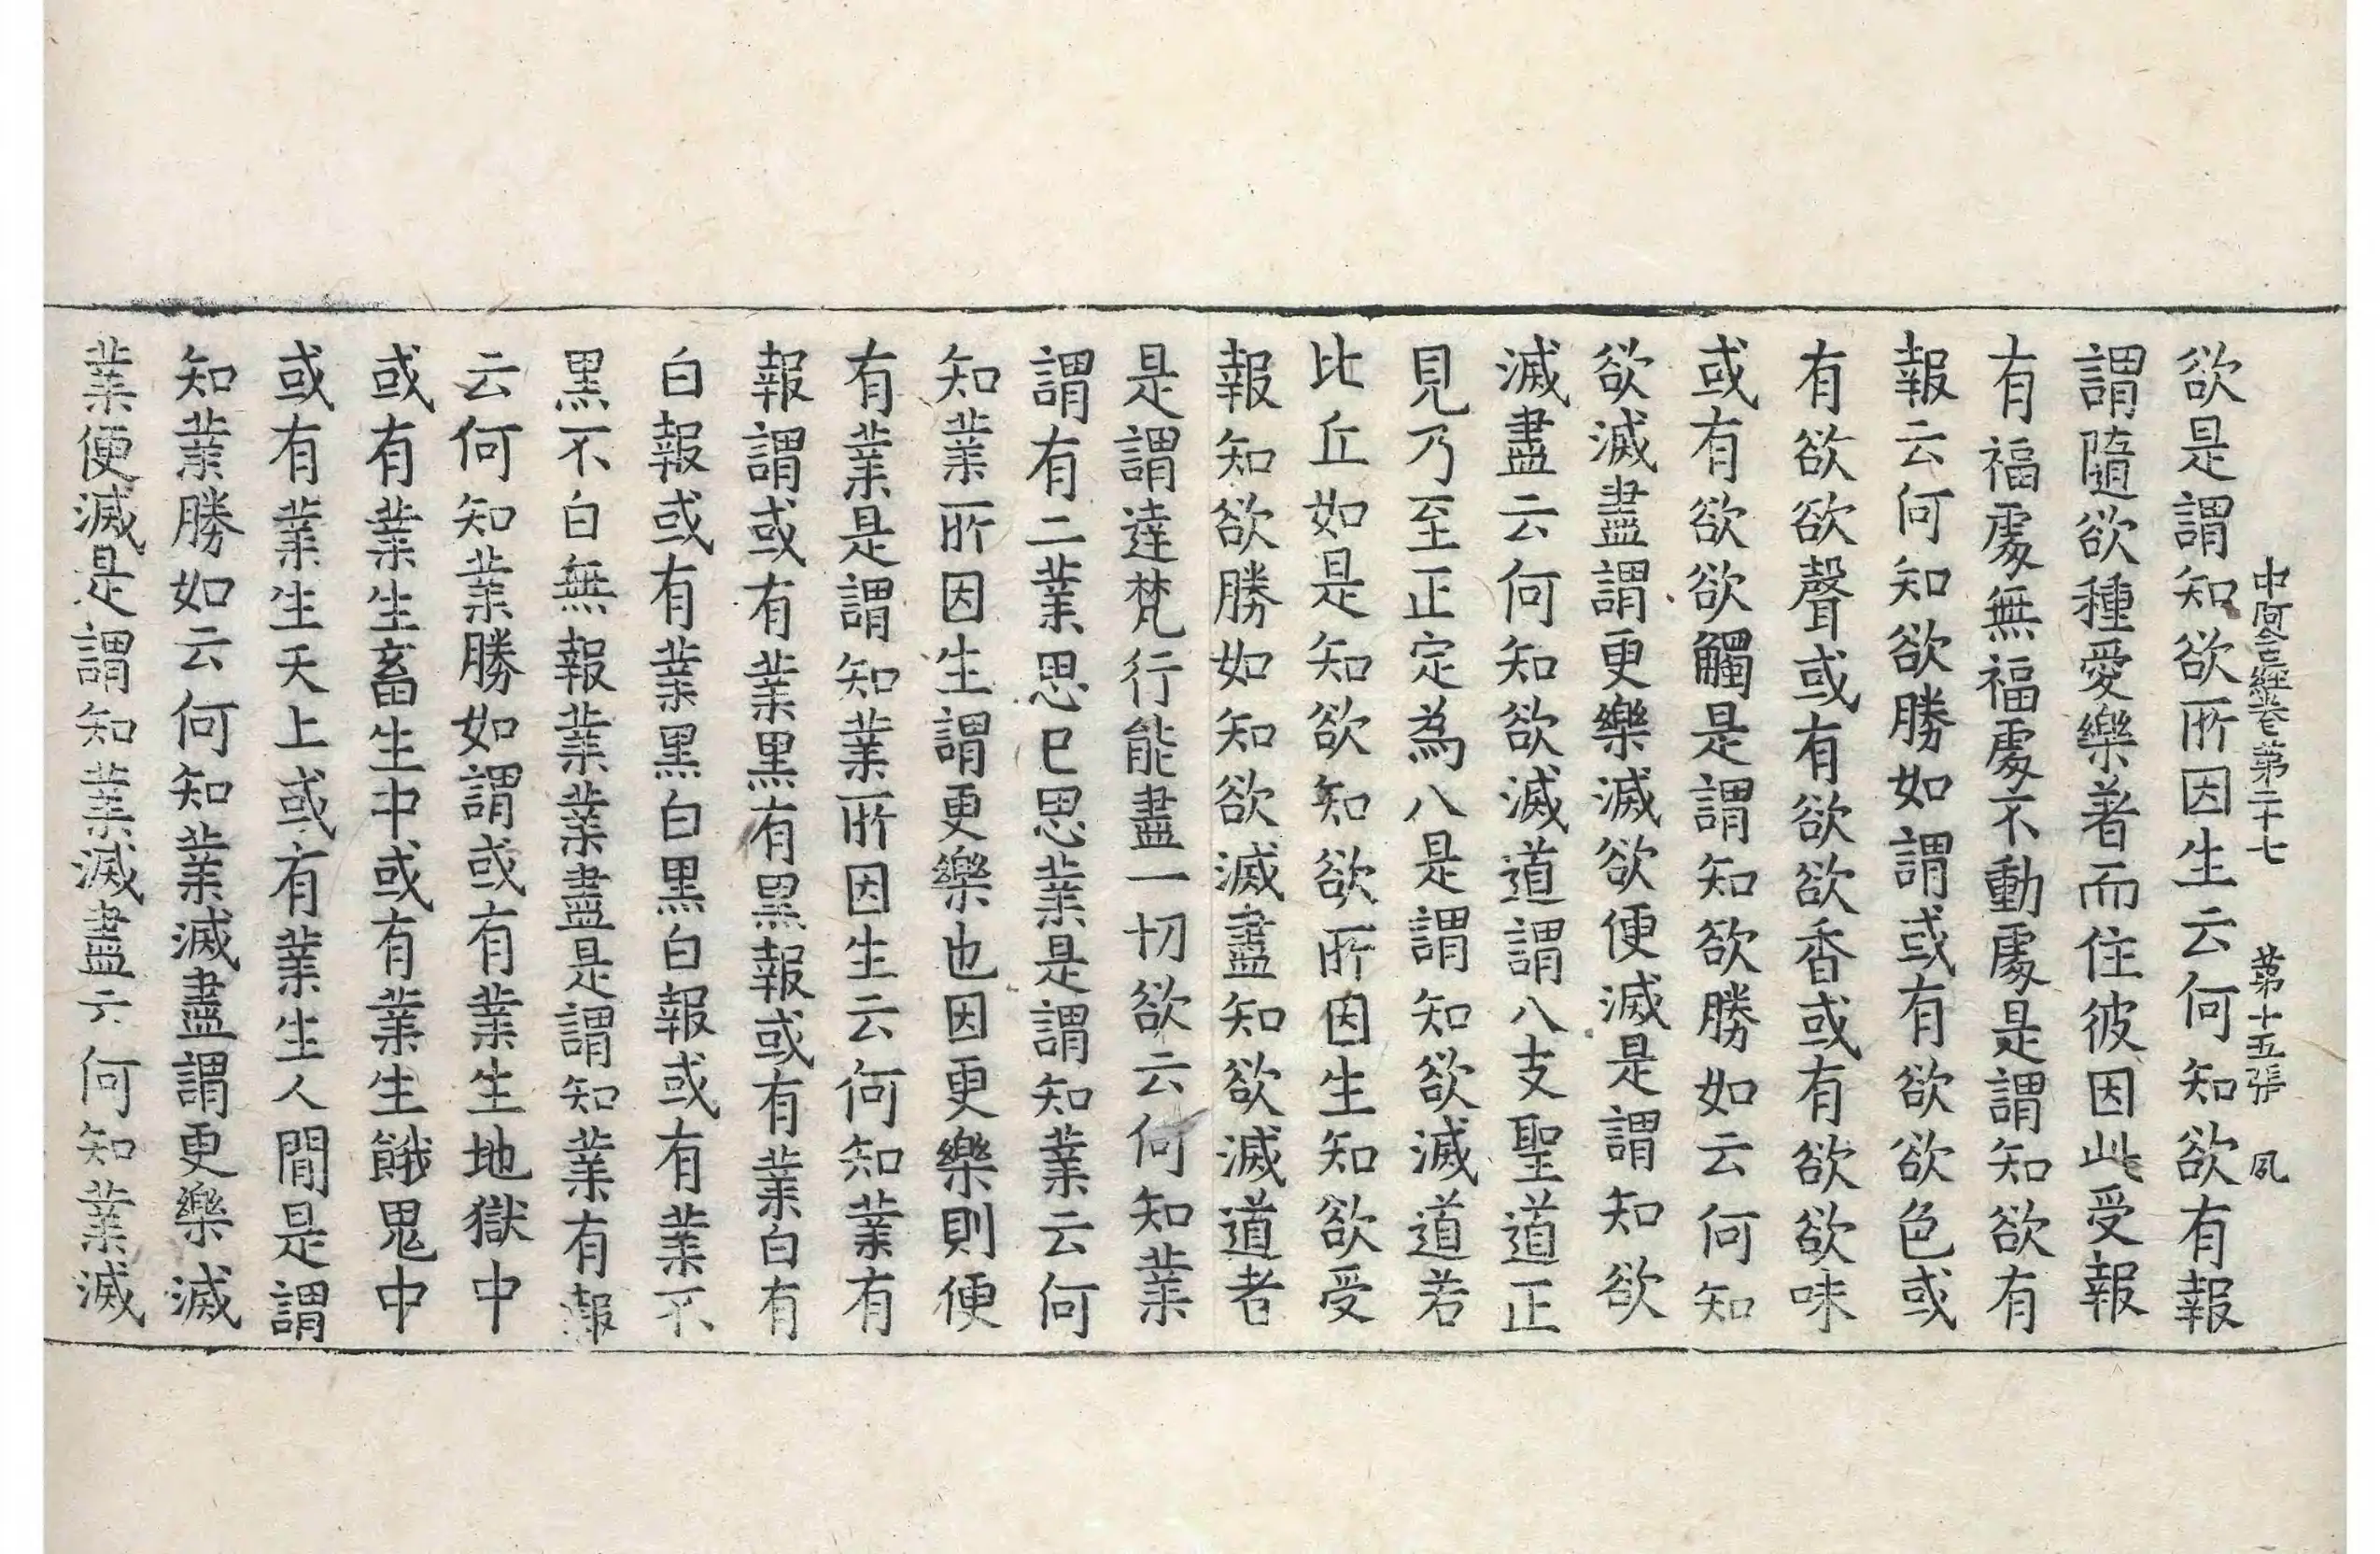 欲是謂知欲所因生云何知欲有報
中阿含經卷第二十七 第十五張 夙
謂隨欲種愛樂著而住彼因此受報
有福處無福處不動處是謂知欲有
報云何知欲勝如謂或有欲欲色或
有欲欲聲或有欲欲香或有欲欲味
或有欲欲觸是謂知欲勝如云何知
欲滅盡謂更樂滅欲便滅是謂知欲
滅盡云何知欲滅道謂八支聖道正
見乃至正定為八是謂知欲滅道若
比丘如是知欲知欲所因生知欲受
報知欲勝如知欲滅盡知欲滅道者
是謂達梵行能盡一切欲云何知業
謂有二業思已思業是謂知業云何
知業所因生謂更樂也因更樂則便
有業是謂知業所因生云何知業有
報謂或有業黑有黑報或有業白有
白報或有業黑白黑白報或有業不
黑不白無報業業盡是謂知業有報
云何知業勝如謂或有業生地獄中
或有業生畜生中或有業生餓鬼中
或有業生天上或有業生人間是謂
知業勝如云何知業滅盡謂更樂滅
業便滅是謂知業滅盡云何知業滅